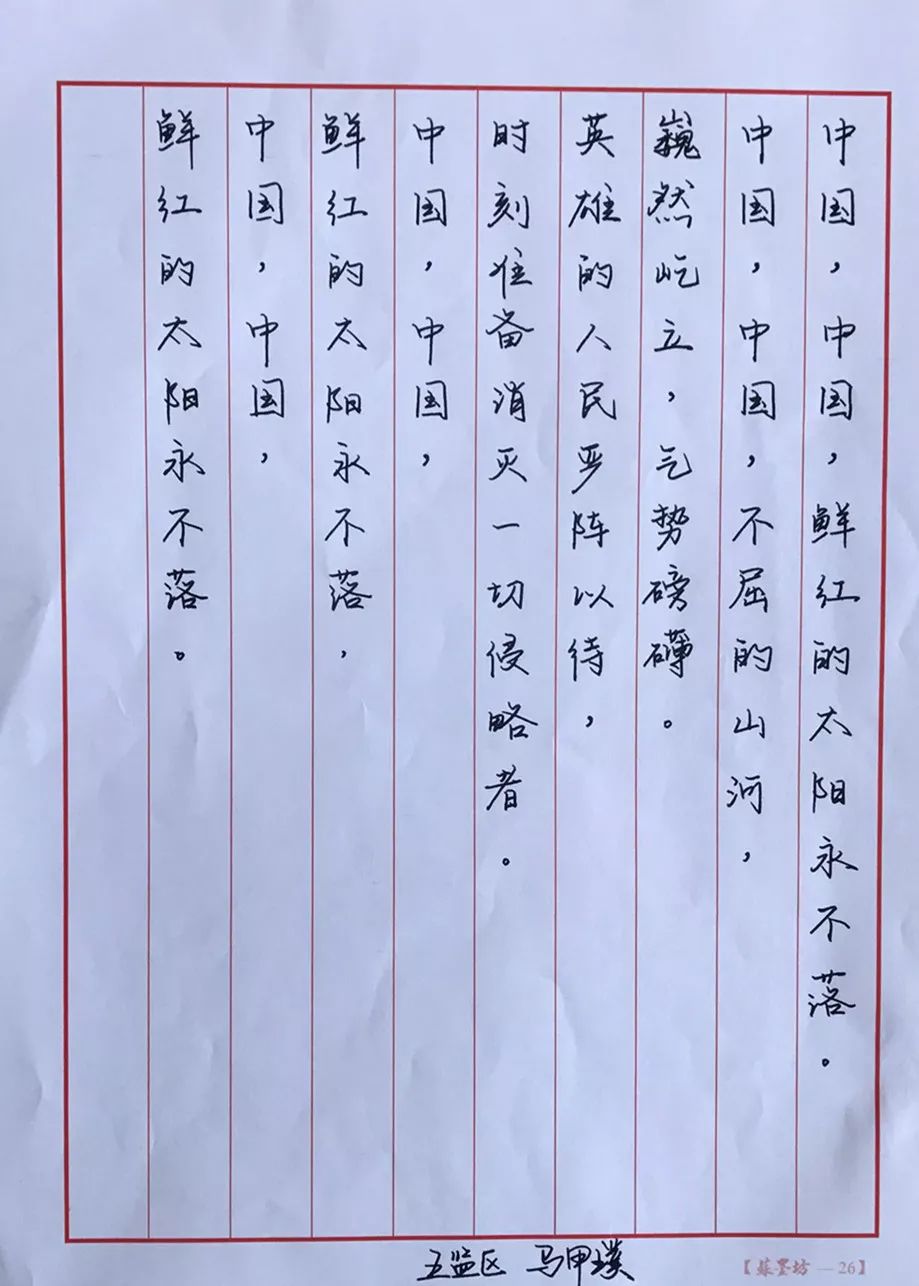 中国，中国，鲜红的太阳永不落。
中国，中国，不屈的山河，
巍然屹立，气势磅礴。
英雄的人民严阵以待，
时刻准备消灭一切侵略者。
中国，中国，
鲜红的太阳永不落，
中国，中国，
鲜红的太阳永不落。
五监区 马甲璞
【苏墨坊—26】